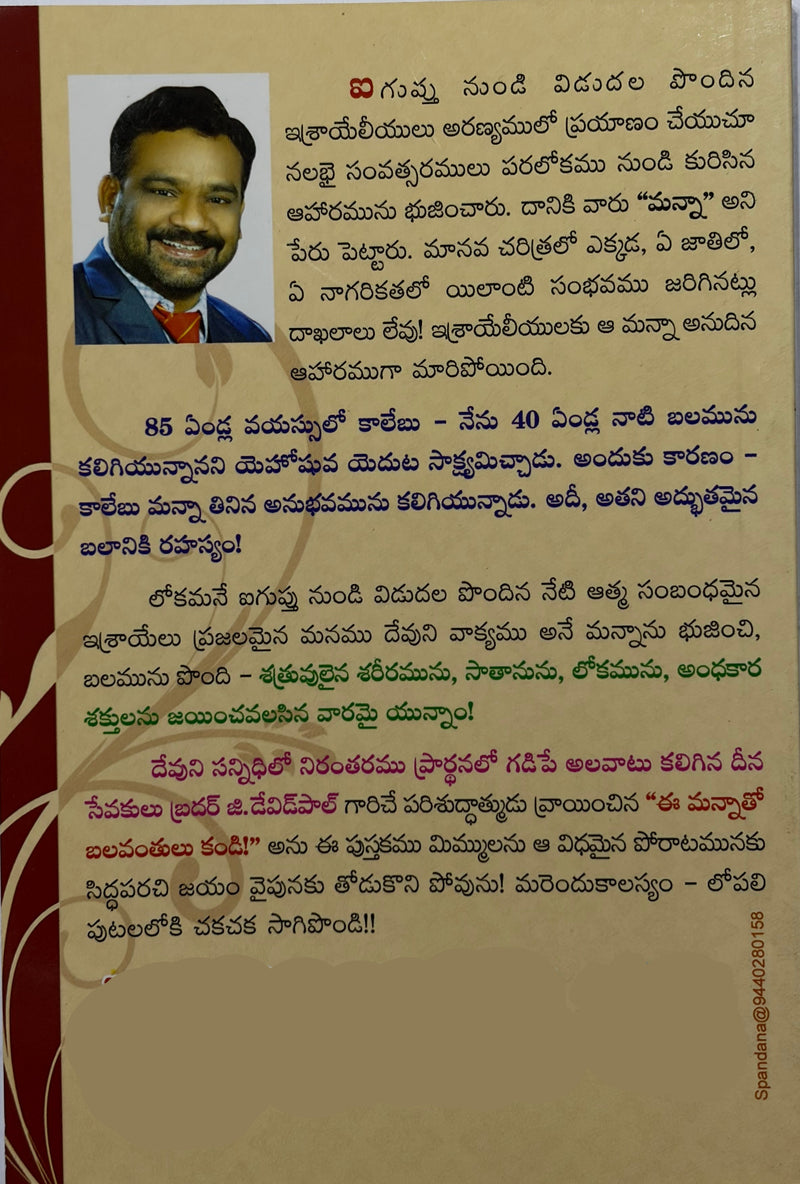 ఐగుప్తు నుండి విడుదల పొందిన
ఇశ్రాయేలీయులు అరణ్యములో ప్రయాణం చేయుచూ
నలభై సంవత్సరములు పరలోకము నుండి కురిసిన
ఆహారమును భుజించారు. దానికి వారు “మన్నా” అని
పేరు పెట్టారు. మానవ చరిత్రలో ఎక్కడ, ఏ జాతిలో,
ఏ నాగరికతలో యిలాంటి సంభవము జరిగినట్లు
దాఖలాలు లేవు! ఇశ్రాయేలీయులకు ఆ మన్నా అనుదిన
ఆహారముగా మారిపోయింది.
85 ఏండ్ల వయస్సులో కాలేబు – నేను 40 ఏండ్ల నాటి బలమును
కలిగియున్నానని యెహోషువ యెదుట సాక్ష్యమిచ్చాడు. అందుకు కారణం –
కాలేబు మన్నా తినిన అనుభవమును కలిగియున్నాడు. అదీ, అతని అద్భుతమైన
బలానికి రహస్యం!
లోకమనే ఐగుప్తు నుండి విడుదల పొందిన నేటి ఆత్మ సంబంధమైన
ఇశ్రాయేలు ప్రజలమైన మనము దేవుని వాక్యము అనే మన్నాను భుజించి,
బలమును పొంది – శత్రువులైన శరీరమును, సాతానును, లోకమును, అంధకార
శక్తులను జయించవలసిన వారమై యున్నాం!
దేవుని సన్నిధిలో నిరంతరము ప్రార్థనలో గడిపే అలవాటు కలిగిన దీన
సేవకులు బ్రదర్ జి.డేవిడ్‌పాల్ గారిచే పరిశుద్ధాత్ముడు వ్రాయించిన “ఈ మన్నాతో
బలవంతులు కండి!” అను ఈ పుస్తకము మిమ్ములను ఆ విధమైన పోరాటమునకు
సిద్ధపరచి జయం వైపునకు తోడుకొని పోవును! మరెందుకాలస్యం – లోపలి
పుటలలోకి చకచక సాగిపొండి!!
Spandana@9440280158